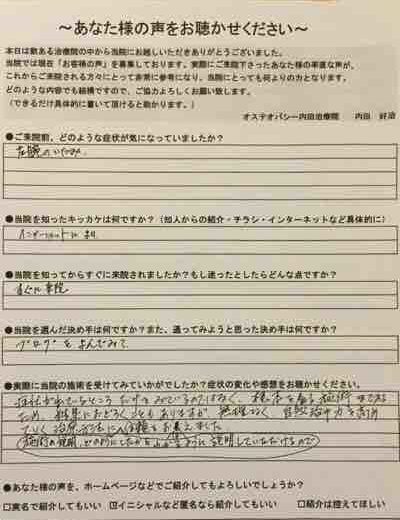 ～あなた様の声をお聴かせください～
本日は数ある治療院の中から当院にお越しいただきありがとうございました。
当院では現在「お客様の声」を募集しております。実際にご来院下さったあなた様の率直な声が、
これからご来院される方々にとって非常に参考になり、当院にとっても何よりの力となります。
どのような内容でも結構ですので、ご協力よろしくお願い致します。
（できるだけ具体的に書いて頂けると助かります。）
オステオパシー内田治療院 内田 好治
●ご来院前、どのような症状が気になっていましたか？
左腕のいたみ、
●当院を知ったキッカケは何ですか？（知人からの紹介・チラシ・インターネットなど具体的に）
インターネットにより
●当院を知ってからすぐに来院されましたか？もし迷ったとしたらどんな点ですか？
すぐに来院
●当院を選んだ決め手は何ですか？また、通ってみようと思った決め手は何ですか？
ブログをよんでみて
●実際に当院の施術を受けてみていかがでしたか？症状の変化や感想をお聴かせください。
症状がでているところだけをみているのではなく、根本を見る施術
ため、結果におどろくこともありますが、無理なく、自然治ゆ力を高め
ていく治療方法に信頼をおぼえました。
施術の説明、 説明していただけるので
●あなた様の声を、ホームページなどでご紹介してもよろしいでしょうか？
□実名で紹介してもいい ☑イニシャルなど匿名なら紹介してもいい □紹介は控えてほしい